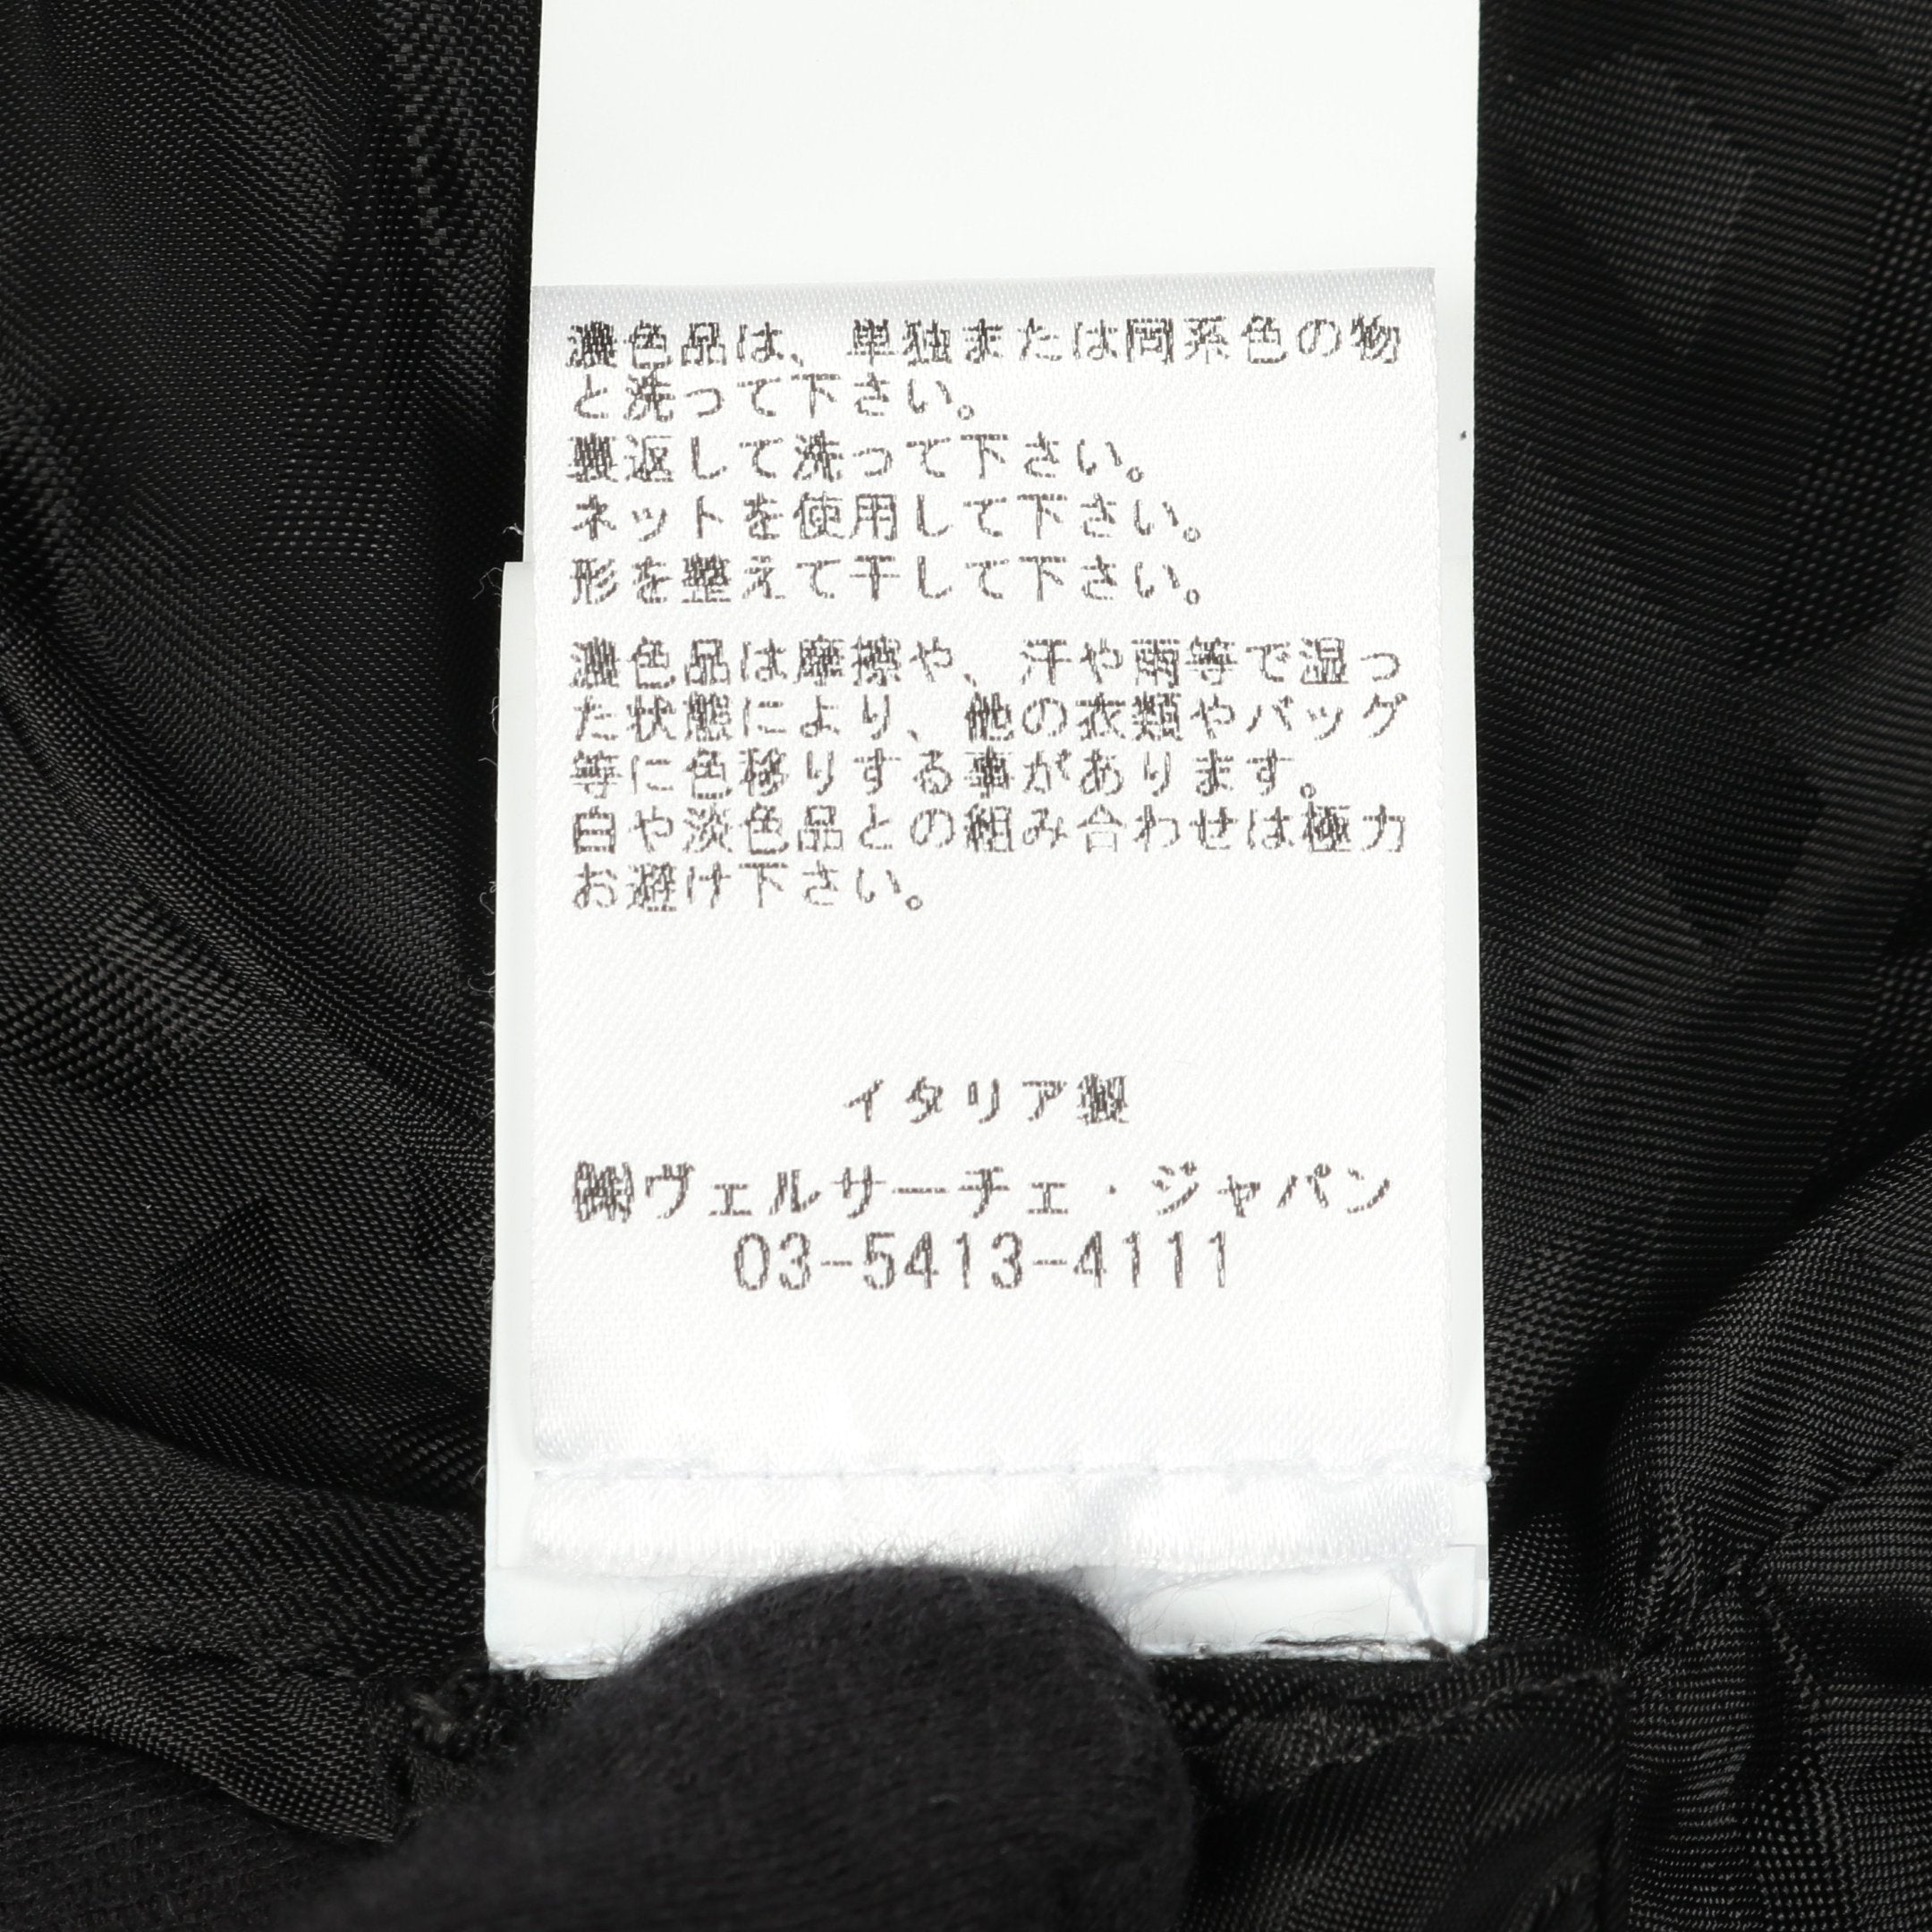 濃色品は、単独または同系色の物
と洗って下さい。
裏返して洗って下さい。
ネットを使用して下さい。
形を整えて干して下さい。
濃色品は摩擦や、汗や雨等で湿っ
た状態により、他の衣類やバッグ
等に色移りする事があります。
白や淡色品との組み合わせは極力
お避け下さい。
イタリア製
㈱ヴェルサーチェ・ジャパン
03-5413-4111